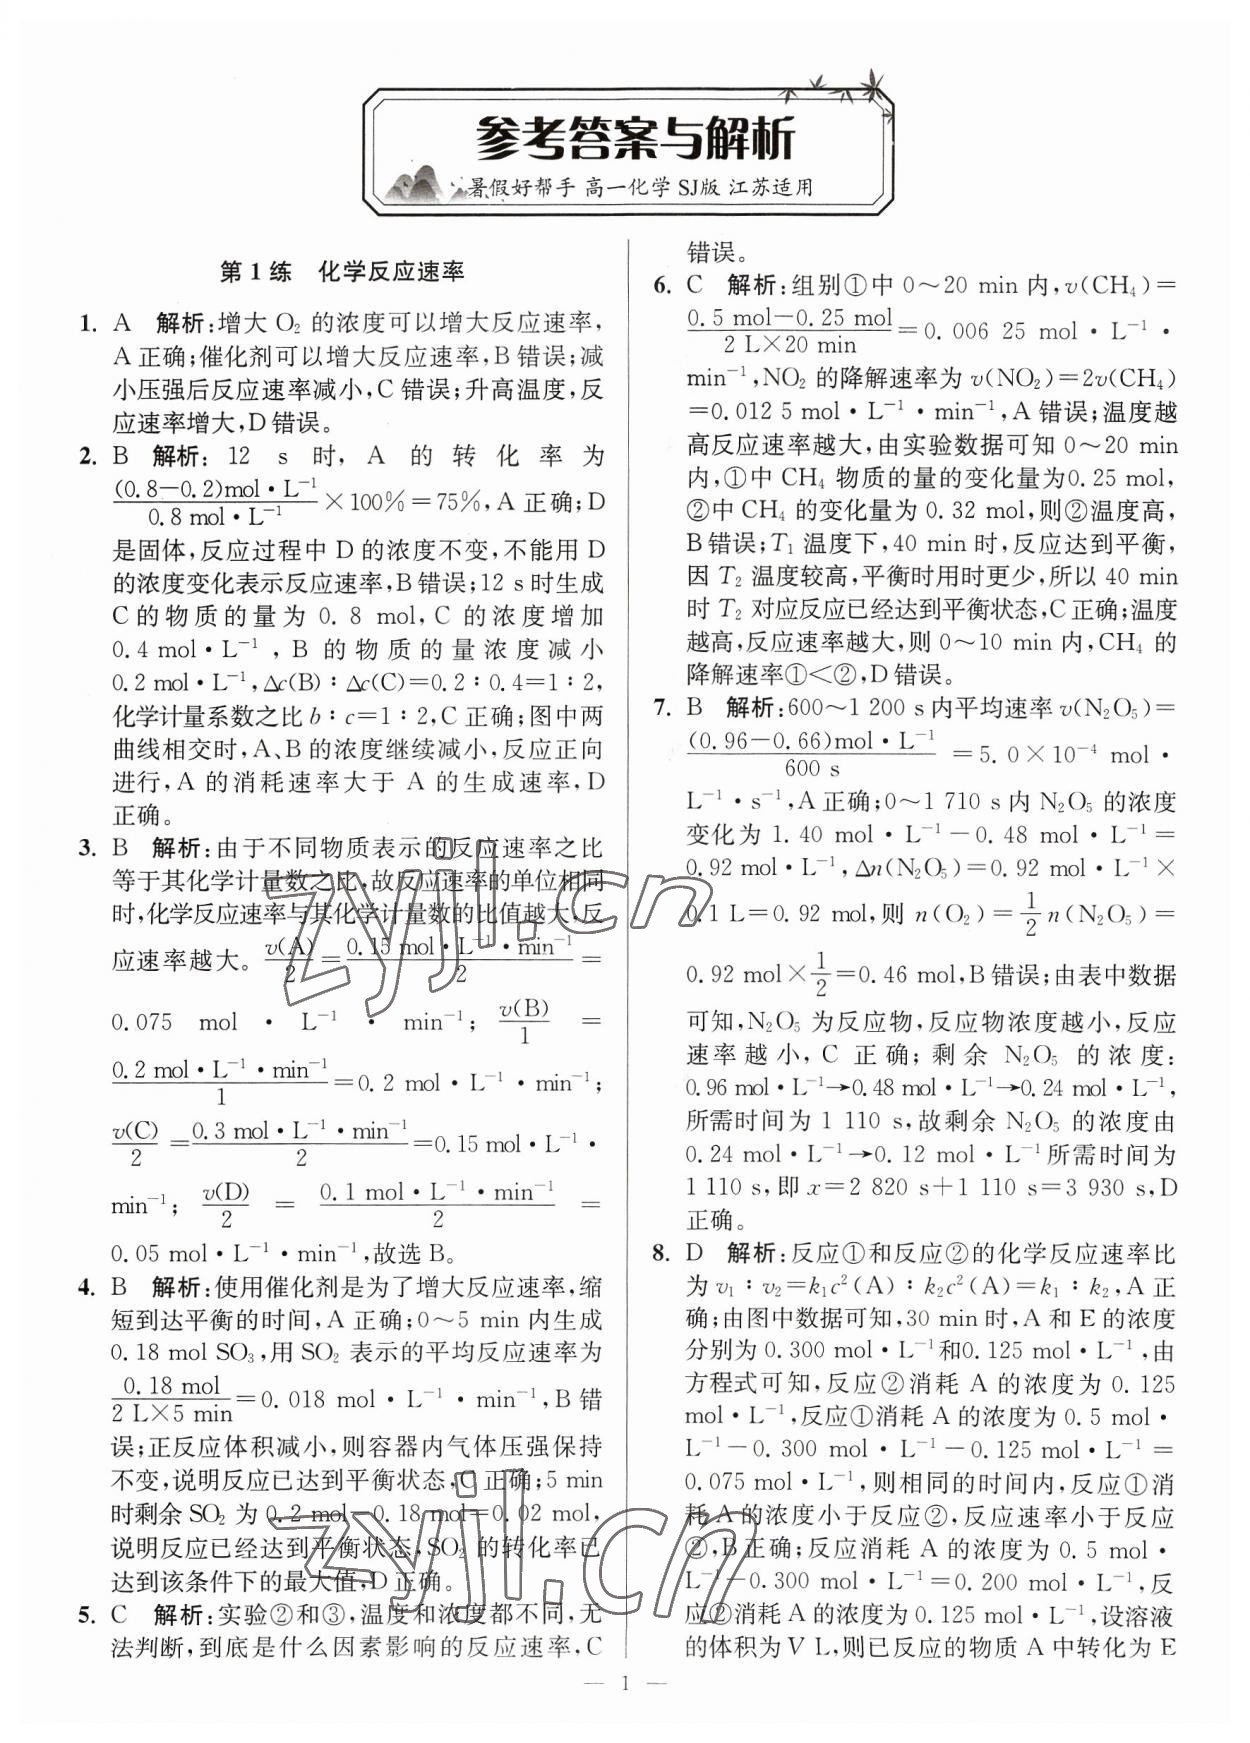 参考答案与解析
暑假好帮手 高一化学 SJ版 江苏适用
第1练 化学反应速率
1. A 解析:增大 O₂ 的浓度可以增大反应速率,
A 正确;催化剂可以增大反应速率,B 错误;减
小压强后反应速率减小,C 错误;升高温度,反
应速率增大,D 错误。
2. B 解析: 12 s 时, A 的转化率为
(0.8−0.2)mol·L⁻¹/0.8 mol·L⁻¹ ×100%=75%,A 正确;D
是固体,反应过程中 D 的浓度不变,不能用 D
的浓度变化表示反应速率,B 错误;12 s 时生成
C 的物质的量为 0.8 mol,C 的浓度增加
0.4 mol·L⁻¹ , B 的物质的量浓度减小
0.2 mol·L⁻¹,Δc(B)∶Δc(C)=0.2∶0.4=1∶2,
化学计量系数之比 b∶c=1∶2,C 正确;图中两
曲线相交时,A、B 的浓度继续减小,反应正向
进行,A 的消耗速率大于 A 的生成速率,D
正确。
3. B 解析:由于不同物质表示的反应速率之比
等于其化学计量数之比,故反应速率的单位相同
时,化学反应速率与其化学计量数的比值越大,反
应速率越大。v(A)/2=0.15 mol·L⁻¹·min⁻¹/2=
0.075 mol·L⁻¹·min⁻¹; v(B)/1 =
0.2 mol·L⁻¹·min⁻¹/1=0.2 mol·L⁻¹·min⁻¹;
v(C)/2=0.3 mol·L⁻¹·min⁻¹/2=0.15 mol·L⁻¹·
min⁻¹; v(D)/2 = 0.1 mol·L⁻¹·min⁻¹/2 =
0.05 mol·L⁻¹·min⁻¹,故选 B。
4. B 解析:使用催化剂是为了增大反应速率,缩
短到达平衡的时间,A 正确;0～5 min 内生成
0.18 mol SO₃,用 SO₂ 表示的平均反应速率为
0.18 mol/2 L×5 min=0.018 mol·L⁻¹·min⁻¹,B 错
误;正反应体积减小,则容器内气体压强保持
不变,说明反应已达到平衡状态,C 正确;5 min
时剩余 SO₂ 为 0.2 mol−0.18 mol=0.02 mol,
说明反应已经达到平衡状态,SO₂ 的转化率已
达到该条件下的最大值,D 正确。
5. C 解析:实验②和③,温度和浓度都不同,无
法判断,到底是什么因素影响的反应速率,C
错误。
6. C 解析:组别①中 0～20 min 内,v(CH₄)=
0.5 mol−0.25 mol/2 L×20 min=0.006 25 mol·L⁻¹·
min⁻¹,NO₂ 的降解速率为 v(NO₂)=2v(CH₄)
=0.012 5 mol·L⁻¹·min⁻¹,A 错误;温度越
高反应速率越大,由实验数据可知 0～20 min
内,①中 CH₄ 物质的量的变化量为0.25 mol,
②中 CH₄ 的变化量为 0.32 mol,则②温度高,
B 错误;T₁ 温度下,40 min 时,反应达到平衡,
因 T₂ 温度较高,平衡时用时更少,所以 40 min
时 T₂ 对应反应已经达到平衡状态,C 正确;温度
越高,反应速率越大,则 0～10 min 内,CH₄ 的
降解速率①<②,D 错误。
7. B 解析:600～1 200 s 内平均速率 v(N₂O₅)=
(0.96−0.66)mol·L⁻¹/600 s =5.0×10⁻⁴ mol·
L⁻¹·s⁻¹,A 正确;0～1 710 s 内 N₂O₅ 的浓度
变化为 1.40 mol·L⁻¹−0.48 mol·L⁻¹=
0.92 mol·L⁻¹,Δn(N₂O₅)=0.92 mol·L⁻¹×
0.1 L=0.92 mol,则 n(O₂)=1/2 n(N₂O₅)=
0.92 mol×1/2=0.46 mol,B 错误;由表中数据
可知,N₂O₅ 为反应物,反应物浓度越小,反应
速率越小, C 正确; 剩余 N₂O₅ 的浓度:
0.96 mol·L⁻¹→0.48 mol·L⁻¹→0.24 mol·L⁻¹,
所需时间为 1 110 s,故剩余 N₂O₅ 的浓度由
0.24 mol·L⁻¹→0.12 mol·L⁻¹所需时间为
1 110 s,即 x=2 820 s+1 110 s=3 930 s,D
正确。
8. D 解析:反应①和反应②的化学反应速率比
为 v₁∶v₂=k₁c²(A)∶k₂c²(A)=k₁∶k₂,A 正
确;由图中数据可知,30 min 时,A 和 E 的浓度
分别为 0.300 mol·L⁻¹和0.125 mol·L⁻¹,由
方程式可知,反应②消耗 A 的浓度为 0.125
mol·L⁻¹,反应①消耗 A 的浓度为 0.5 mol·
L⁻¹−0.300 mol·L⁻¹−0.125 mol·L⁻¹=
0.075 mol·L⁻¹,则相同的时间内,反应①消
耗 A 的浓度小于反应②,反应速率小于反应
②,B 正确;反应消耗 A 的浓度为 0.5 mol·
L⁻¹−0.300 mol·L⁻¹=0.200 mol·L⁻¹,反
应②消耗 A 的浓度为 0.125 mol·L⁻¹,设溶液
的体积为 V L,则已反应的物质 A 中转化为 E
— 1 —
zyjl.cn
zyjl.cn